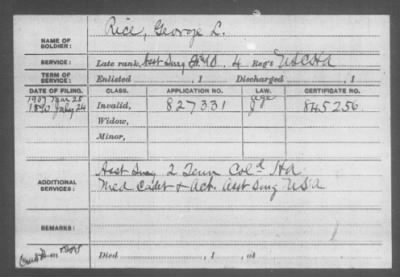 NAME OF SOLDIER: Rice, George L.
SERVICE: Late rank, Asst Surg F&S, 4 Reg't USCHA
TERM OF SERVICE: Enlisted , 1 Discharged , 1
DATE OF FILING. CLASS. APPLICATION NO. LAW. CERTIFICATE NO.
1907 Mar 25
1890 July 24 Invalid, 827331 age 845256
Widow,
Minor,
ADDITIONAL SERVICES: Asst Surg 2 Tenn Col'd HA
Med Cadet & Act. Asst Surg USA
REMARKS:
Died , 1 , at